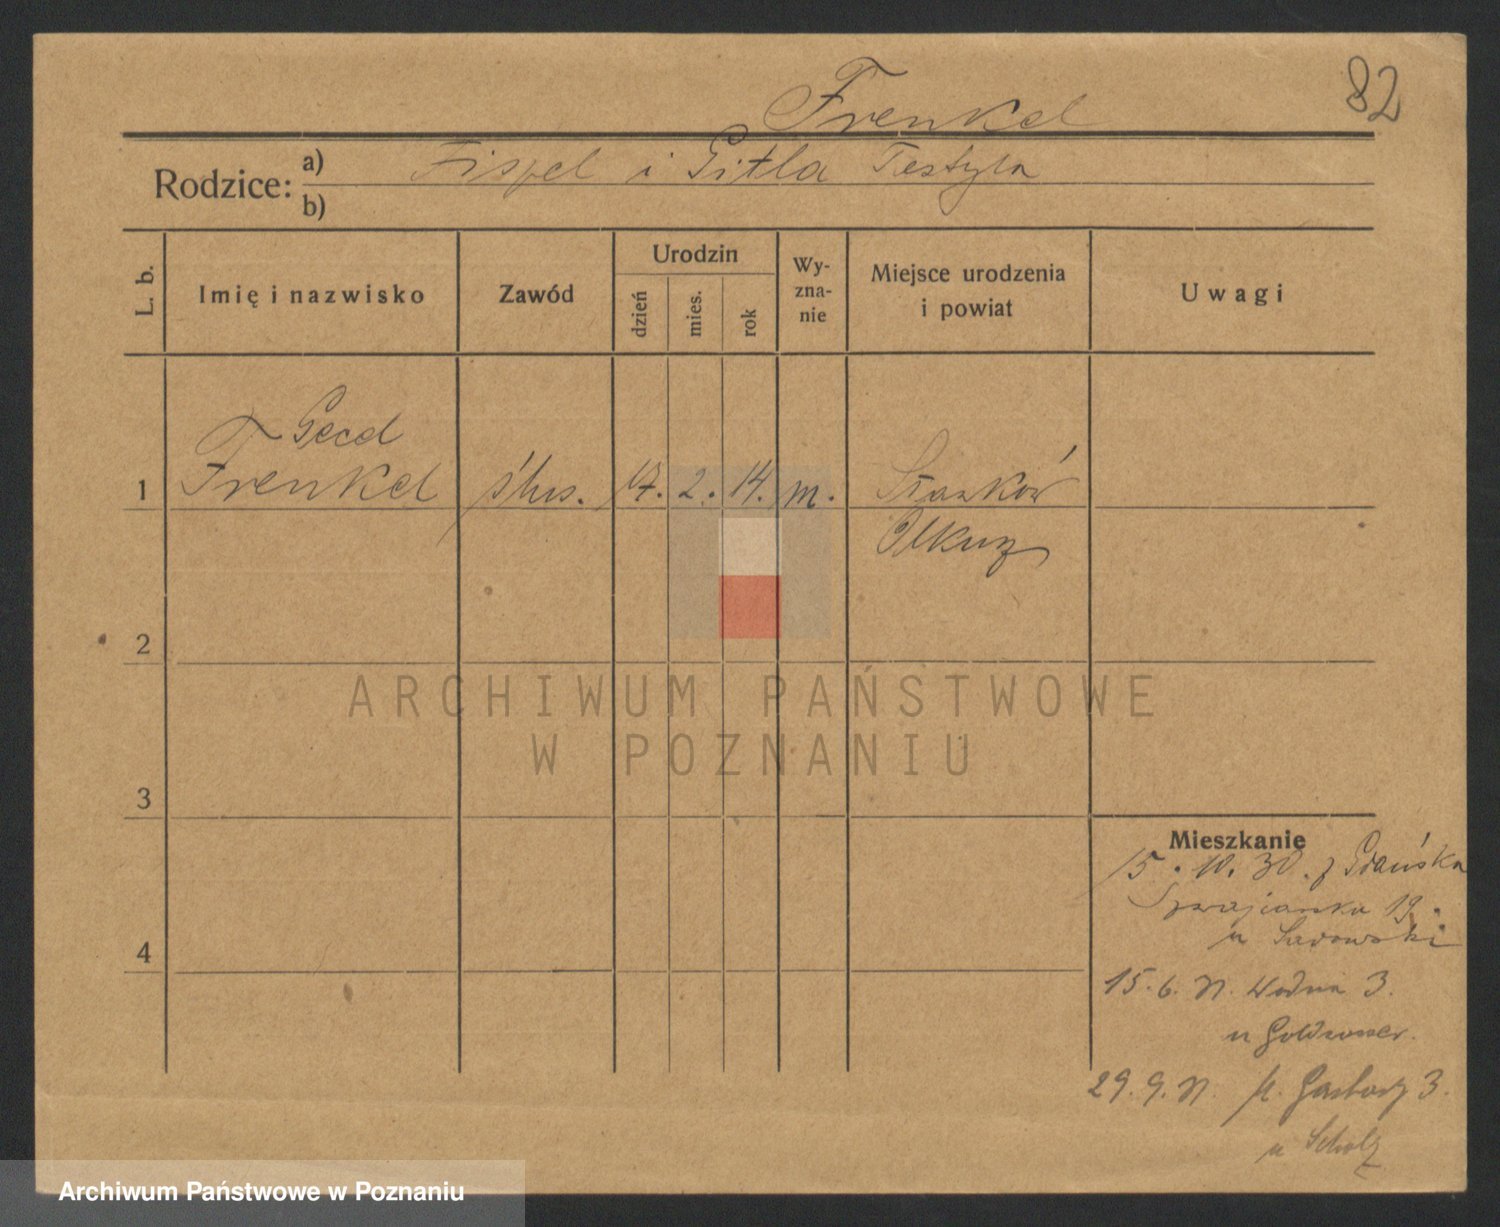 82
Frenkel
Rodzice: a) Fiszel i Gitla Testyla
b)
L. b.
Imię i nazwisko
Zawód
Urodzin
dzień
mies.
rok
Wy-
zna-
nie
Miejsce urodzenia
i powiat
Uwagi
Gecel
1 Frenkel ślus. 17. 2. 14. m. Sławków
Olkusz
2
ARCHIWUM PAŃSTWOWE
W POZNANIU
3
Mieszkanie
15. 10. 30. z Gdańska
Szwajcarska 19.
u Sadowski
4
15. 6. 31. Wodna 3.
u
29. 9. 31. M. Garbary 3.
u Scholz
Archiwum Państwowe w Poznaniu